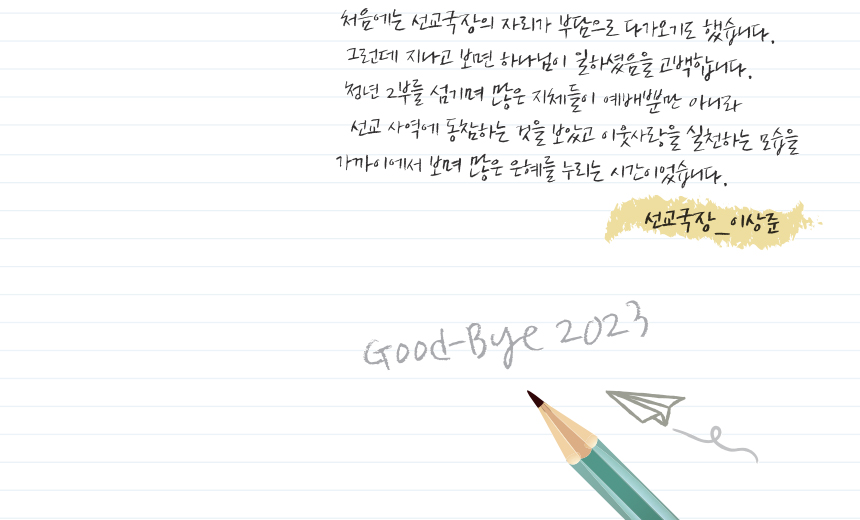 처음에는 선교국장의 자리가 부담으로 다가오기도 했습니다.
그런데 지나고 보면 하나님이 일하셨음을 고백합니다.
청년 2부를 섬기며 많은 지체들이 예배뿐만 아니라
선교 사역에 동참하는 것을 보았고 이웃사랑을 실천하는 모습을
가까이에서 보며 많은 은혜를 누리는 시간이었습니다.
선교국장_이상준
Good-Bye 2023